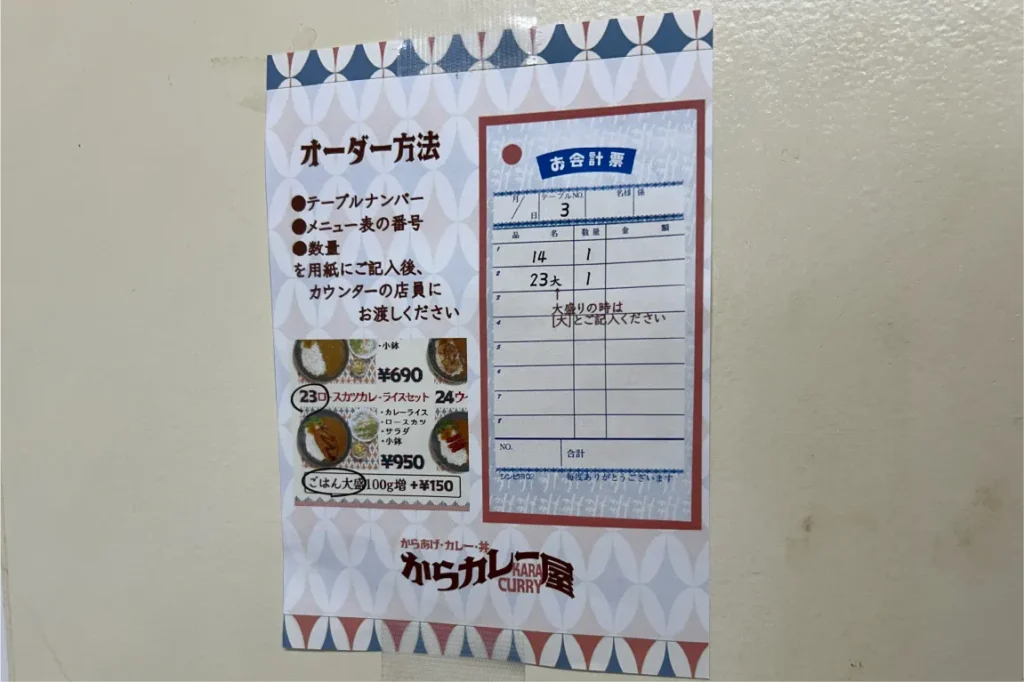 オーダー方法
●テーブルナンバー
●メニュー表の番号
●数量
を用紙にご記入後、
カウンターの店員に
お渡しください
・小鉢
¥690
23ロースカツカレーライスセット 24ウ
・カレーライス
・ロースカツ
・サラダ
・小鉢
¥950
ごはん大盛100g増 +¥150
お会計票
月 日 テーブルNO. 3 名様 係
品名 数量 金額
1 14 1
2 23大 1
↑
3 大盛りの時は
4 [大]とご記入ください
5
6
7
8
NO. 合計
シンピ田02 毎度ありがとうございます
からあげ・カレー・丼
からカレー屋
KARA
CURRY